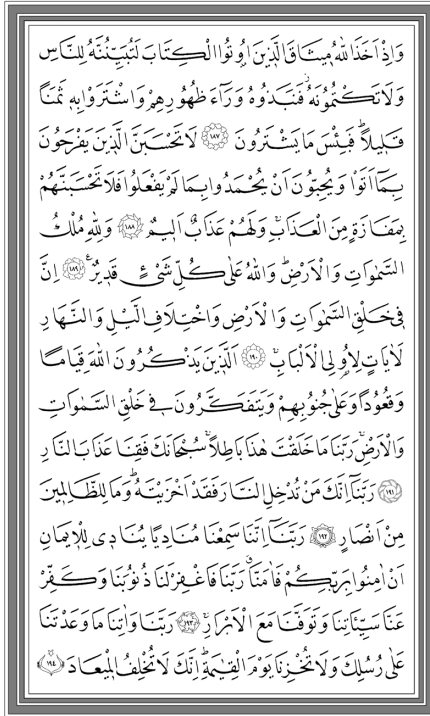 وَاِذْ اَخَذَ اللّٰهُ م۪يثَاقَ الَّذ۪ينَ اُو۫تُوا الْكِتَابَ لَتُبَيِّنُنَّهُ لِلنَّاسِ
وَلَا تَكْتُمُونَهُۘ فَنَبَذُوهُ وَرَٓاءَ ظُهُورِهِمْ وَاشْتَرَوْا بِه۪ ثَمَنًا
قَل۪يلًاۜ فَبِئْسَ مَا يَشْتَرُونَ ﴿١٨٧﴾ لَا تَحْسَبَنَّ الَّذ۪ينَ يَفْرَحُونَ
بِمَٓا اَتَوْا وَيُحِبُّونَ اَنْ يُحْمَدُوا بِمَا لَمْ يَفْعَلُوا فَلَا تَحْسَبَنَّهُمْ
بِمَفَازَةٍ مِنَ الْعَذَابِۚ وَلَهُمْ عَذَابٌ اَل۪يمٌ ﴿١٨٨﴾ وَلِلّٰهِ مُلْكُ
السَّمٰوَاتِ وَالْاَرْضِۜ وَاللّٰهُ عَلٰى كُلِّ شَيْءٍ قَد۪يرٌ۟ ﴿١٨٩﴾ اِنَّ
ف۪ي خَلْقِ السَّمٰوَاتِ وَالْاَرْضِ وَاخْتِلَافِ الَّيْلِ وَالنَّهَارِ
لَاٰيَاتٍ لِاُو۬لِي الْاَلْبَابِۚ ﴿١٩٠﴾ اَلَّذ۪ينَ يَذْكُرُونَ اللّٰهَ قِيَامًا
وَقُعُودًا وَعَلٰى جُنُوبِهِمْ وَيَتَفَكَّرُونَ ف۪ي خَلْقِ السَّمٰوَاتِ
وَالْاَرْضِۚ رَبَّنَا مَا خَلَقْتَ هٰذَا بَاطِلًاۚ سُبْحَانَكَ فَقِنَا عَذَابَ النَّارِ
﴿١٩١﴾ رَبَّنَٓا اِنَّكَ مَنْ تُدْخِلِ النَّارَ فَقَدْ اَخْزَيْتَهُۜ وَمَا لِلظَّالِم۪ينَ
مِنْ اَنْصَارٍ ﴿١٩٢﴾ رَبَّنَٓا اِنَّنَا سَمِعْنَا مُنَادِيًا يُنَاد۪ي لِلْا۪يمَانِ
اَنْ اٰمِنُوا بِرَبِّكُمْ فَاٰمَنَّاۗ رَبَّنَا فَاغْفِرْ لَنَا ذُنُوبَنَا وَكَفِّرْ
عَنَّا سَيِّـَٔاتِنَا وَتَوَفَّنَا مَعَ الْاَبْرَارِۚ ﴿١٩٣﴾ رَبَّنَا وَاٰتِنَا مَا وَعَدْتَنَا
عَلٰى رُسُلِكَ وَلَا تُخْزِنَا يَوْمَ الْقِيٰمَةِۜ اِنَّكَ لَا تُخْلِفُ الْم۪يعَادَ ﴿١٩٤﴾